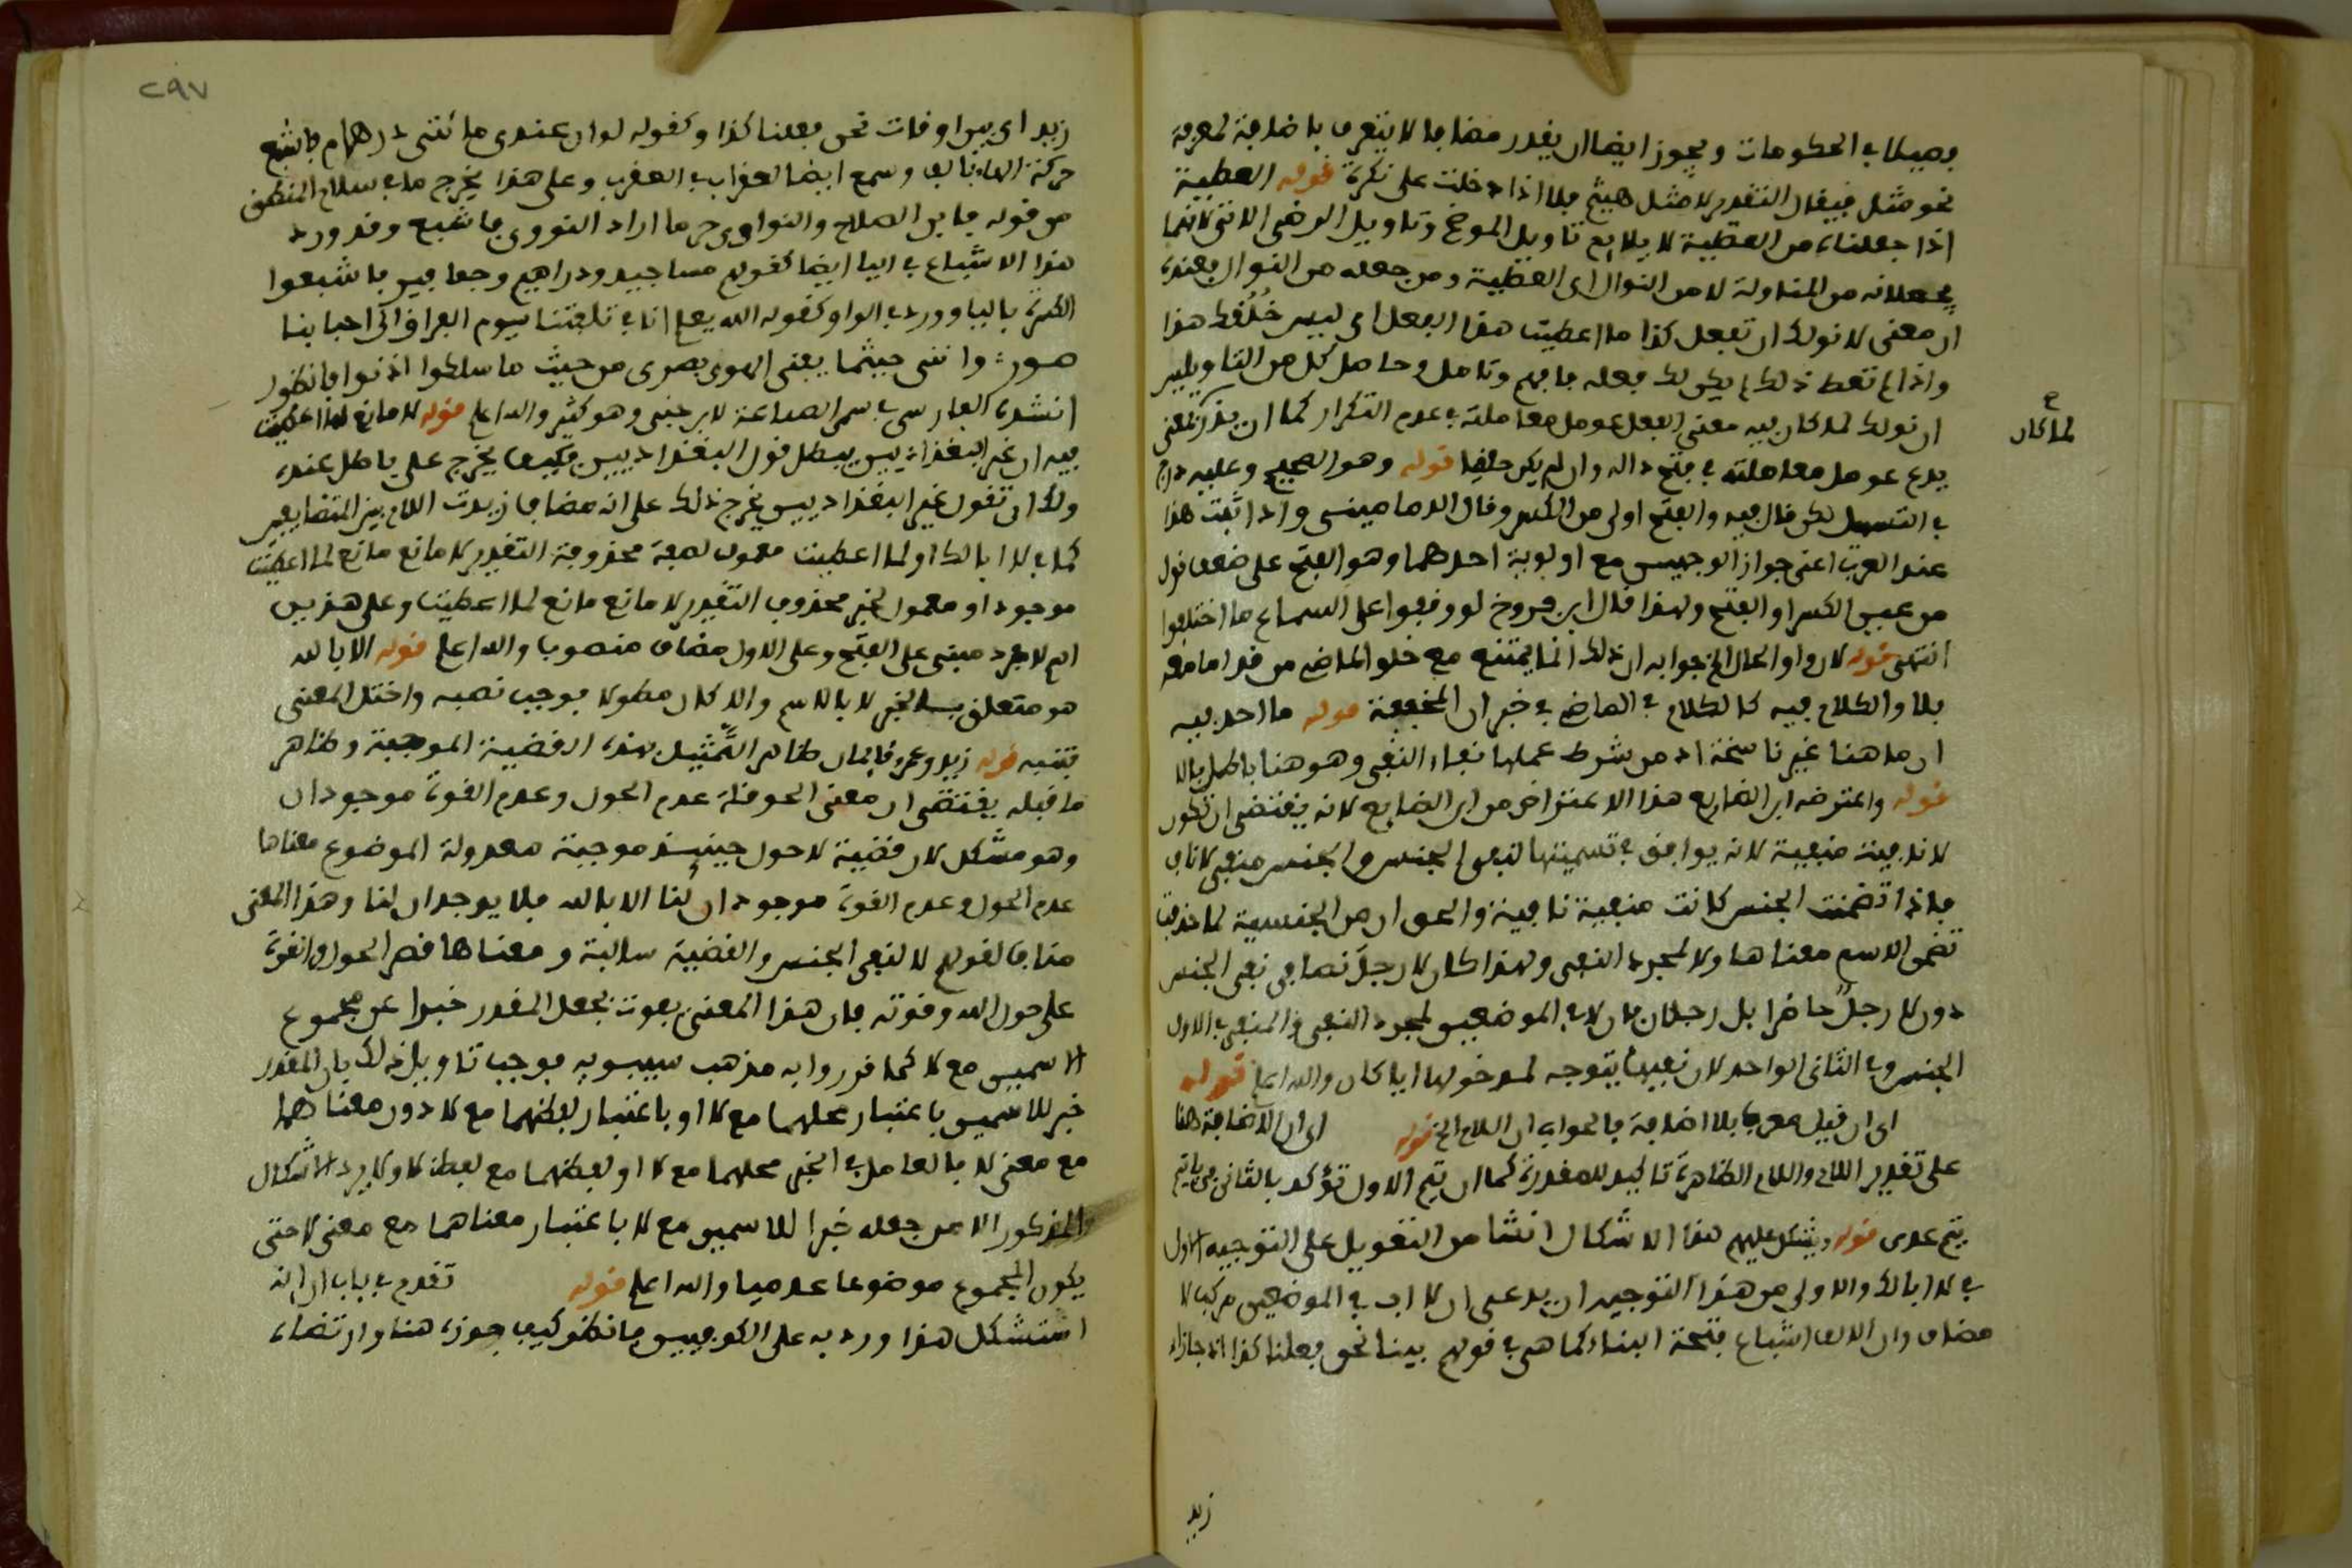 فيصلا في الحكومات ويجوز ايضا ان يقدر مضاف لا يتعرف باضافة لمعرفة
نحو مثل فيقال التقدير لا مثل هيثم فلا اذا دخلت على نكرة قوله العطية
اذا جعلناه من العطية لا يلايم تاويل الموضح وتاويل الرضى الاتى لانهما
يجعلانه من المناولة لا من النوال اى العطية ومن جعله من النوال فعنده
ان معنى لا نولك ان تفعل كذا ما اعطيت هذا الفعل اى ليس خُلُقك هذا
واذا لم تعط ذلك لم يكن لك فعله فافهم وتامل وحاصل كل من التاويلين
ان نولك لما كان فيه معنى الفعل عومل معاملته في عدم التكرار كما ان يذر لمعنى
لما كان
يدع عومل معاملته في فتح داله وان لم يكن حلقيا قوله وهو الصحيح وعليه درج
في التسهيل لكن قال فيه والفتح اولى من الكسر وقال الدمامينى واذا ثبت هذا
عند العرب اعنى جواز الوجهين مع اولوية احدهما وهو الفتح على ضعف قول
من عين الكسر او الفتح ولهذا قال ابن خروف لو وقفوا على السماع ما اختلفوا
انتهى قوله لان واو الحال الخ جوابه ان ذلك انما يمتنع مع خلو الماضي من قد اما معه
فلا والكلام فيه كالكلام في الماضي في خبر ان المخففة قوله ما احد فيه
ان ما هنا غير ناسخة اذ من شرط عملها بقاء النفى وهو هنا باطل بالا
قوله واعترضه ابن الضايع هذا الاعتراض من ابن الضايع لانه يقتضى ان تكون
لا نافية منفية لانه يوافق في تسميتها لنفى الجنس والجنس منفى لا ناف
فاذا تضمنت الجنس كانت منفية نافية والحق ان من الجنسية لما حذفت
تضمن الاسم معناها ولا لمجرد النفى ولهذا كان لا رجلَ نصا في نفى الجنس
دون لا رجلٌ حاضرا بل رجلان فان لا في الموضعين لمجرد النفى والمنفى في الاول
الجنس وفى الثانى الواحد لان نفيها يتوجه لمدخولها ايا كان والله اعلم قوله
اى ان قيل معرب بلا اضافة فالجواب ان اللام الخ قوله اى ان الاضافة هنا
على تقدير اللام واللام الظاهرة تاكيد للمقدرة كما ان تيم الاول تؤكد بالثانى في يا تيم
تيم عدى قوله ويشكل عليهم هذا الاشكال انشا من التعويل على التوجيه الاول
في لا ابا لك والاولى من هذا التوجيه ان يدعى ان لا اب في الموضعين مركب لا
مضاف وان الالف اشباع فتحة البناء كما هي في قولهم بينا نحن فعلنا كذا اذ جازاء
زيد
٢٩٧
زيد اى بين اوقات نحن فعلنا كذا وكقوله لو ان عندى مائتى درهام فاشبع
حركة الهاء بالف وسمع ايضا العقراب في العقرب وعلى هذا يخرج ما في سلاح المنطق
من قوله فابن الصلاح والنواوى حرما اراد النووى فاشبع وقد ورد
هذا الاشباع في اليا ايضا كقولهم مساجيد ودراهيم وجعافير فاشبعوا
الكسرة باليا وورد في الواو كقوله الله يعلم انا في تلفتنا يوم الفراق الى احبابنا
صور وانني حيثما يثنى الهوى بصرى من حيث ما سلكوا ادنوا فانظور
انشده الفارسى في سر الصناعة لابن جنى وهو كثير والله اعلم قوله لا مانع لما اعطيت
فيه ان غير البغداديين يبطل قول البغداديين فكيف يخرج على باطل عنده
ولك ان تقول غير البغداديين يخرج ذلك على انه مضاف زيدت اللام بين المتضايفين
كما في لا ابا لك او لما اعطيت معمول لصفة محذوفة التقدير لا مانع مانع لما اعطيت
موجود او معمول لخبر محذوف التقدير لا مانع مانع لما اعطيت وعلى هذين
اسم لا مفرد مبنى على الفتح وعلى الاول مضاف منصوبا والله اعلم قوله الا بالله
هو متعلق بالخبر لا بالاسم والا لكان مطولا فوجب نصبه واختل المعنى
فتنبه قوله زيد وعمرو قايمان ظاهر التمثيل بهذه القضية الموجبة وظاهر
ما قبله يقتضى ان معنى الحوقلة عدم الحول وعدم القوة موجودان
وهو مشكل لان قضية لا حول حينيذ موجبة معدولة الموضوع معناها
عدم الحول وعدم القوة موجودان لنا الا بالله فلا يوجدان لنا وهذا المعنى
مناف لقولهم لا لنفى الجنس والقضية سالبة ومعناها قصر الحول والقوة
على حول الله وقوته فان هذا المعنى يفوت بجعل المقدر خبرا عن مجموع
الاسمين مع لا كما قرروا به مذهب سيبويه فوجب تاويل ذلك بان المقدر
خبر للاسمين باعتبار محلهما مع لا او باعتبار لفظهما مع لا دون معناهما
مع معنى لا فالعامل في الخبر محلهما مع لا او لفظهما مع لفظ لا ولا يرد الاشكال
المذكور الا من جعله خبرا للاسمين مع لا باعتبار معناهما مع معنى لا حتى
يكون المجموع موضوعا عدميا والله اعلم قوله تقدم في باب ان انه
استشكل هذا ورد به على الكوفيين فانظر كيف جوزه هنا وارتضاه